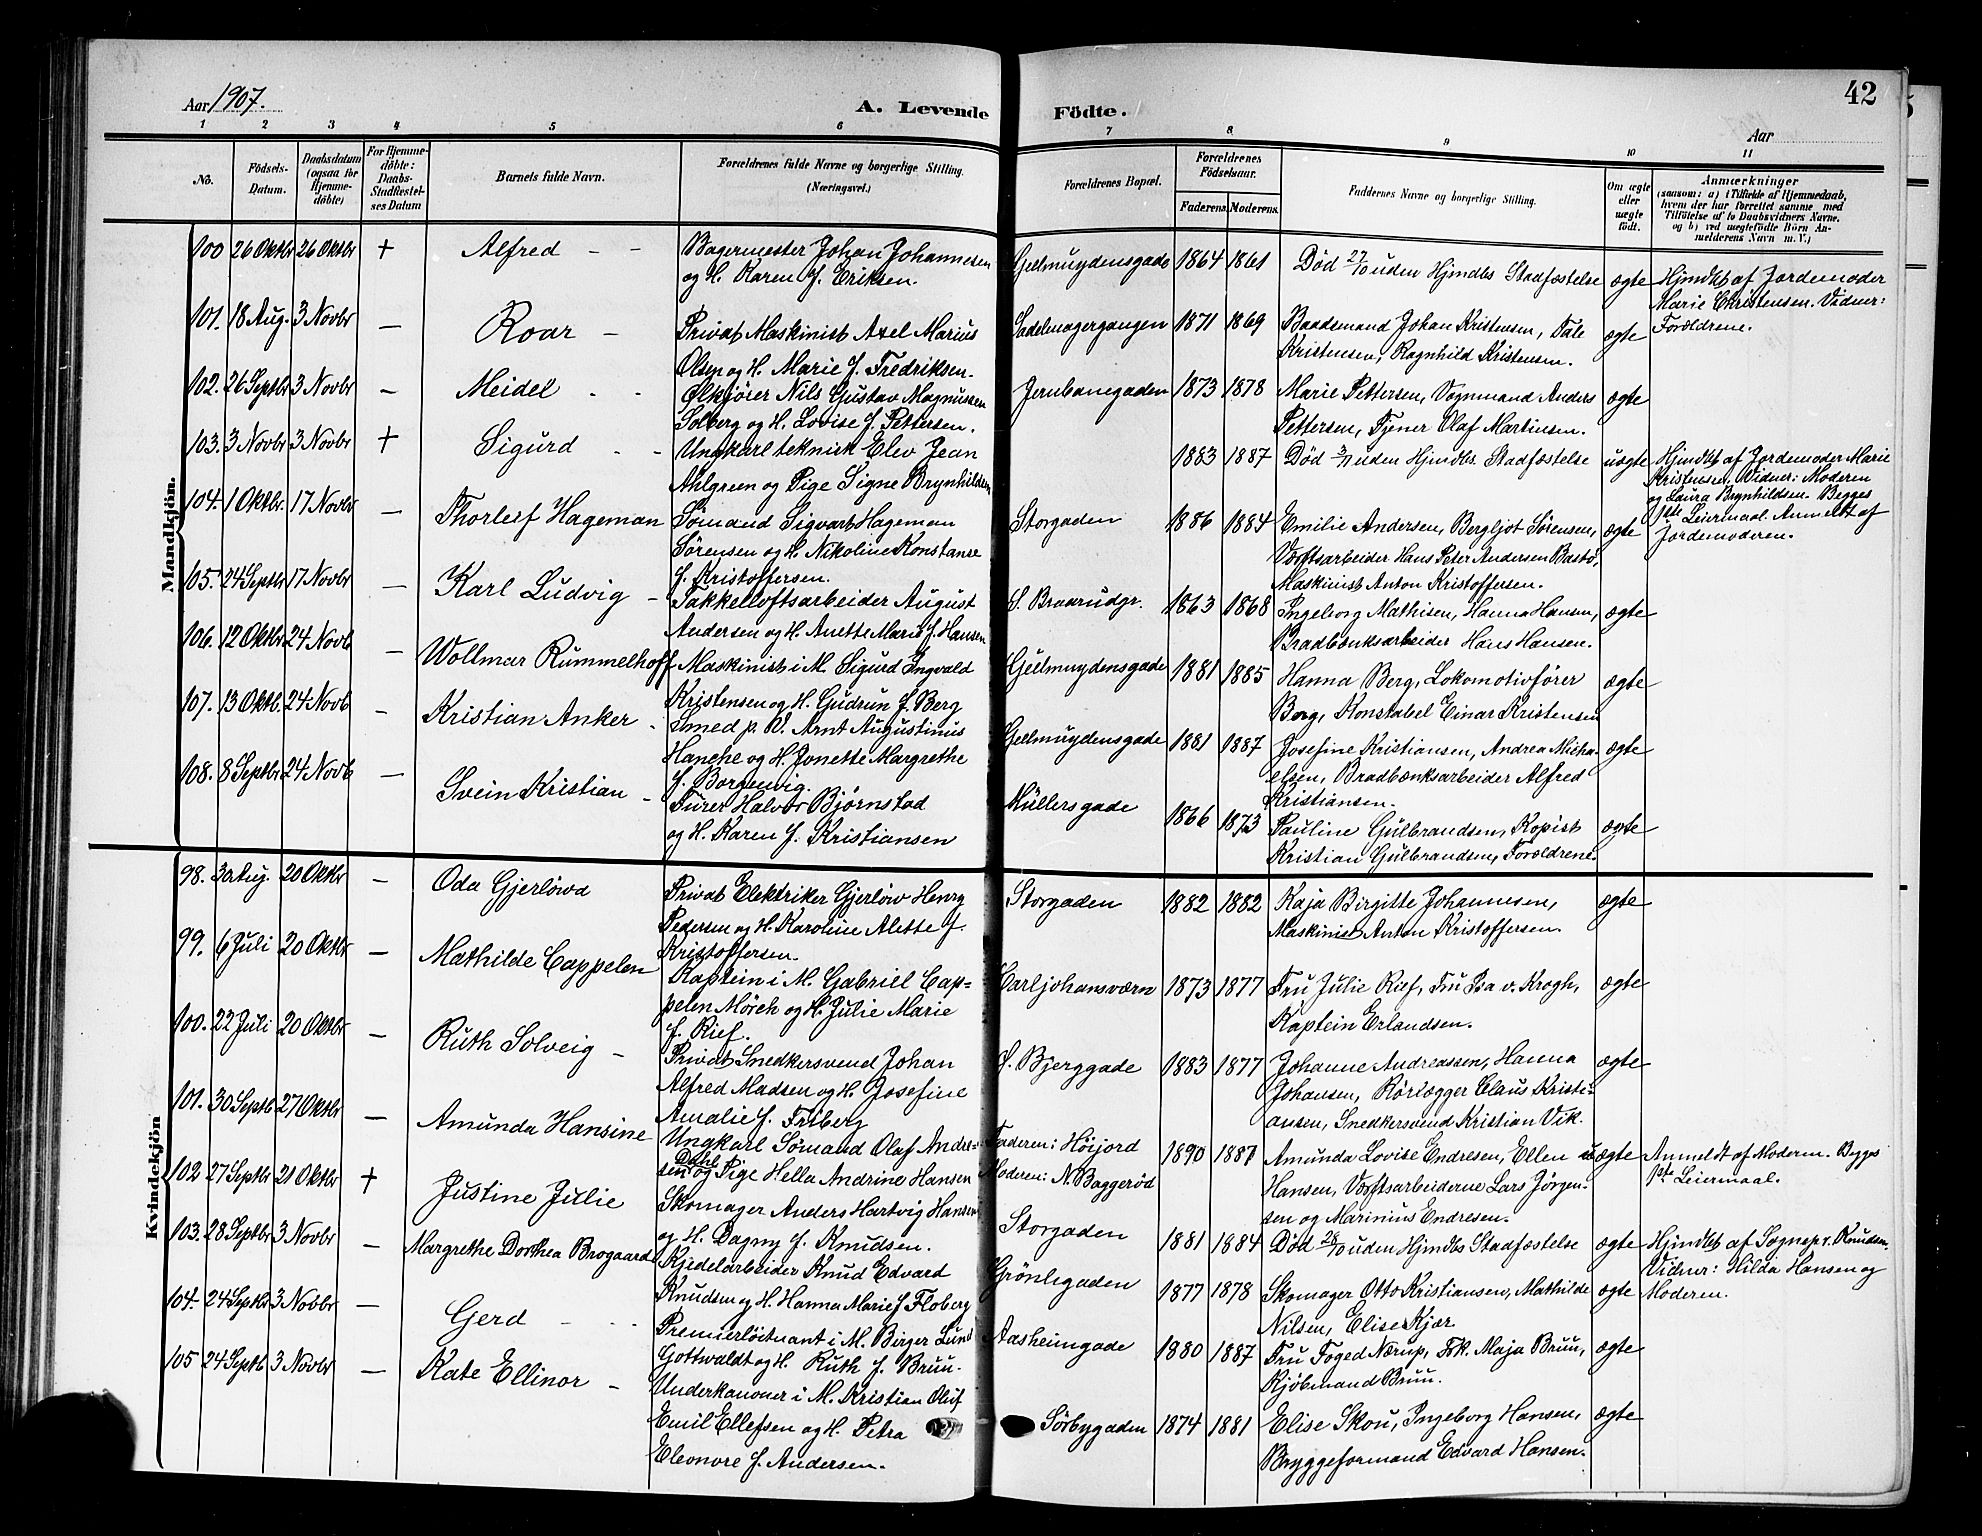 42
Aar 1907.
A. Levende Födte.
Aar
1 2 3 4 5 6 7 8 9 10 11
No.
Födsels-Datum.
Daabsdatum (ogsaa for Hjemmedöbte)
For Hjemmedöbte: Daabs-Stadfæstelses Datum
Barnets fulde Navn.
Forældrenes fulde Navne og borgerlige Stilling.
(Næringsvei.)
Forældrenes Bopæl.
Forældrenes Födselsaar.
Faderens. Moderens.
Faddernes Navne og borgerlige Stilling.
Om ægte eller uægte födt.
Anmærkninger
(saasom: a) i Tilfælde af Hjemmedaab,
hvem der har forrettet samme med
Tilföielse af to Daabsvidners Navne.
og b) ved uægtefödte Börn An-
melderens Navn m. V.)
Mandkjön.
100 26 Oktbr 26 Oktbr + Alfred - - Bagermester Johan Johannesen
og H. Karen f. Eriksen.
Gjelmuydensgade 1864 1861 Död 27/10 uden Hjmdbs Stadfæstelse ægte Hjmdbt af Jordemoder
Marie Christensen. Vidner:
Forældrene.
101. 18 Aug. 3 Novbr - Roar - Privat Maskinist Axel Marius
Olsen og H. Marie f. Fredriksen.
Sadelmagergangen 1871 1869 Baadsmand Johan Kristensen, Tale
Kristensen, Ragnhild Kristensen. ægte
102. 26 Septbr 3 Novbr - Meidel - - Ølkjører Nils Gustav Magnussen
Solberg og H. Lovise f. Pettersen.
Jernbanegaden 1873 1878 Marie Pettersen, Vognmand Anders
Pettersen, Tjener Olaf Martinsen. ægte
103. 3 Novbr 3 Novbr + Sigurd - - Ungkarl teknisk Elev Jean
Ahlgreen og Pige Signe Brynhildsen
1883 1887 Död 3/11 uden Hjmdbs. Stadfæstelse uægte Hjmdbt af Jordemoder Marie
Kristensen, Vidner: Moderen
og Laura Brynhildsen. Begges
1ste Leiermaal. Anmeldt af
Jordemoderen.
104. 1 Oktbr. 17 Novbr - Thorleif Hageman Sømand Sigvart Hageman
Sørensen og H. Nikoline Konstanse
f. Kristoffersen.
Storgaden 1886 1884 Emilie Andersen, Bergljot Sørensen,
Værftsarbeider Hans Peter Andersen Bastø,
Maskinist Anton Kristoffersen. ægte
105. 24 Septbr 17 Novbr - Karl Ludvig - Takkelloftsarbeider August
Andersen og H. Anette Marie f. Hansen
S. Braarudgr. 1863 1868 Ingeborg Mathisen, Hanna Hansen,
Bradbænksarbeider Hans Hansen. ægte
106. 12 Oktbr 24 Novb - Wollmar Rummelhoff Maskinist i M. Sigurd Ingvald
Kristensen og H. Gudrun f. Berg
Gjelmuydensgade 1881 1885 Hanna Berg, Lokomotivfører
Berg, Konstabel Einar Kristensen ægte
107. 13 Oktb. 24 Novb - Kristian Anker - Smed p. V. Arnt Augustinus
Hanche og H. Jonette Margrethe
f. Borgenvig.
Gjelmuydensgade 1881 1887 Josefine Kristiansen, Andrea Micha-
elsen, Bradbænksarbeider Alfred
Kristiansen. ægte
108. 8 Septbr 24 Novb - Svein Kristian - Furer Halvor Bjørnstad
og H. Karen f. Kristiansen
Müllersgade 1866 1873 Pauline Gulbrandsen, Kopist
Kristian Gulbrandsen, Forældrene. ægte
Kvindekjön
98. 30 Aug. 20 Oktbr - Oda Gjerløwa Privat Elektriker Gjerløw Henry
Pedersen og H. Karoline Alette f.
Kristoffersen.
Storgaden 1882 1882 Kaja Birgitte Johannesen,
Maskinist Anton Kristoffersen. ægte
99. 6 Juli 20 Oktbr - Mathilde Cappelen Kaptein i M. Gabriel Cap-
pelen Mörch og H. Julie Marie
f. Rief.
Karljohansværn 1873 1877 Fru Julie Rief, Fru Isa v. Krogh,
Kaptein Erlandsen. ægte
100. 22 Juli 20 Oktbr - Ruth Solveig - Privat Snedkersvend Johan
Alfred Madsen og H. Josefine
Amalie f. Friberg
Ø. Bjerggade 1883 1877 Johanne Andreassen, Hanna
Johansen, Rörlægger Claus Kristi-
ansen, Snedkersvend Kristian Vik. ægte
101. 30 Septb 27 Oktbr - Amunda Hansine Ungkarl Sømand Olaf Andre-
sen Dahl og Pige Hella Andrine Hansen
Faderen: Höijord
Moderen: N. Baggeröd 1890 1887 Amunda Lovise Endresen, Ellen
Hansen, Værftsarbeiderne Lars Jörgen-
sen og Marinius Endresen. uægte Anmeldt af Moderen. Begges
1ste Leiermaal.
102 27 Septbr 21 Oktbr + Justine Julie Skomager Anders Hartvig Hansen
og H. Dagny f. Knudsen.
Storgaden 1881 1884 Död 28/10 uden Hjmdbs Stadfæstelse ægte Hjmdbt af Sognepr. Knudsen.
Vidner: Hilda Hansen og
Moderen.
103. 28 Septbr 3 Novbr - Margrethe Dorthea Brogaard Kjedelarbeider Knud Edvard
Knudsen og H. Hanna Marie f. Floberg
Grönligaden 1877 1878 Skomager Otto Kristiansen, Mathilde
Nilsen, Elise Kjær. ægte
104. 24 Septbr 3 Novbr - Gerd - - Premierlöitnant i M. Birger Lund
Gottwaldt og H. Ruth f. Bruu.
Aasheimgade 1880 1887 Fru Foged Nærup, Frk. Maja Bruu,
Kjöbmand Bruu. ægte
105 24 Septb 3 Novbr - Kate Ellinor - Underkanoner i M. Kristian Oluf
Emil Ellefsen og H. Petra
Eleonore f. Andersen.
Sörbygaden 1874 1881 Elise Skou, Ingeborg Hansen,
Bryggeformand Edvard Hansen. ægte